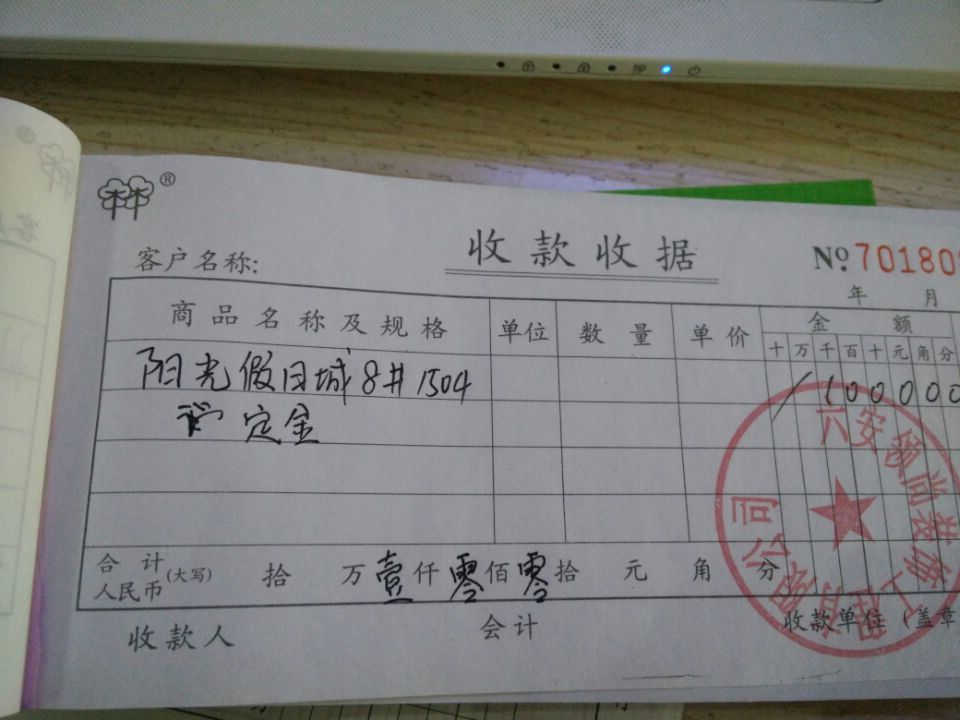 ®
收款收据
客户名称:
№ 70180
年 月
商品名称及规格 单位 数量 单价 金额
十 万 千 百 十 元 角 分
阳光假日城8#1504 / 1 0 0 0 0 0
定金
合计人民币 (大写) 拾 万 壹 仟 零 佰 零 拾 元 角 分
收款人 会计 收款单位(盖章
六安 尚装饰工程有限公司